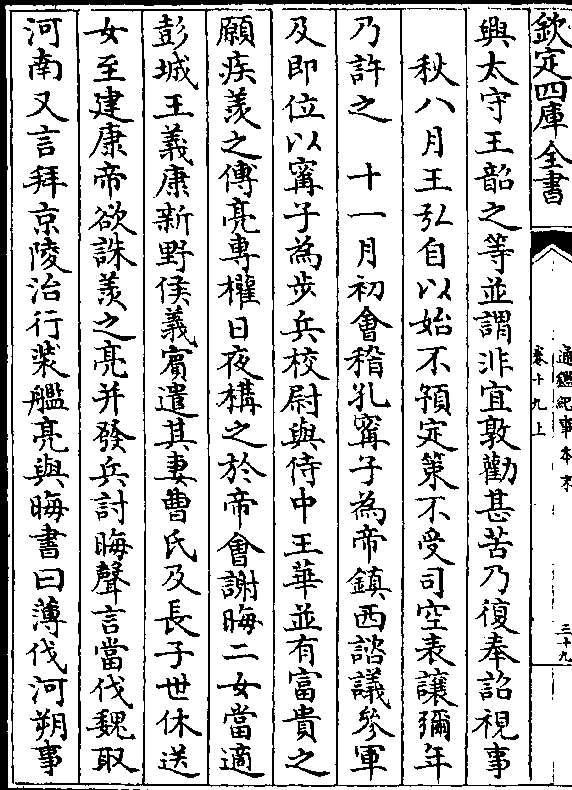 欽定四庫全書
通鑑紀事本末
卷十九上
三十九
興太守王韶之等並謂非宜敦勸甚苦乃復奉詔視事
秋八月王弘自以始不預定策不受司空表讓彌年
乃許之　十一月初會稽孔甯子為帝鎮西諮議參軍
及即位以甯子為步兵校尉與侍中王華並有富貴之
願疾羨之傅亮專權日夜構之於帝會謝晦二女當適
彭城王義康新野侯義賓遣其妻曹氏及長子世休送
女至建康帝欲誅羨之亮并發兵討晦聲言當伐魏取
河南又言拜京陵治行裝艦亮與晦書曰薄伐河朔事